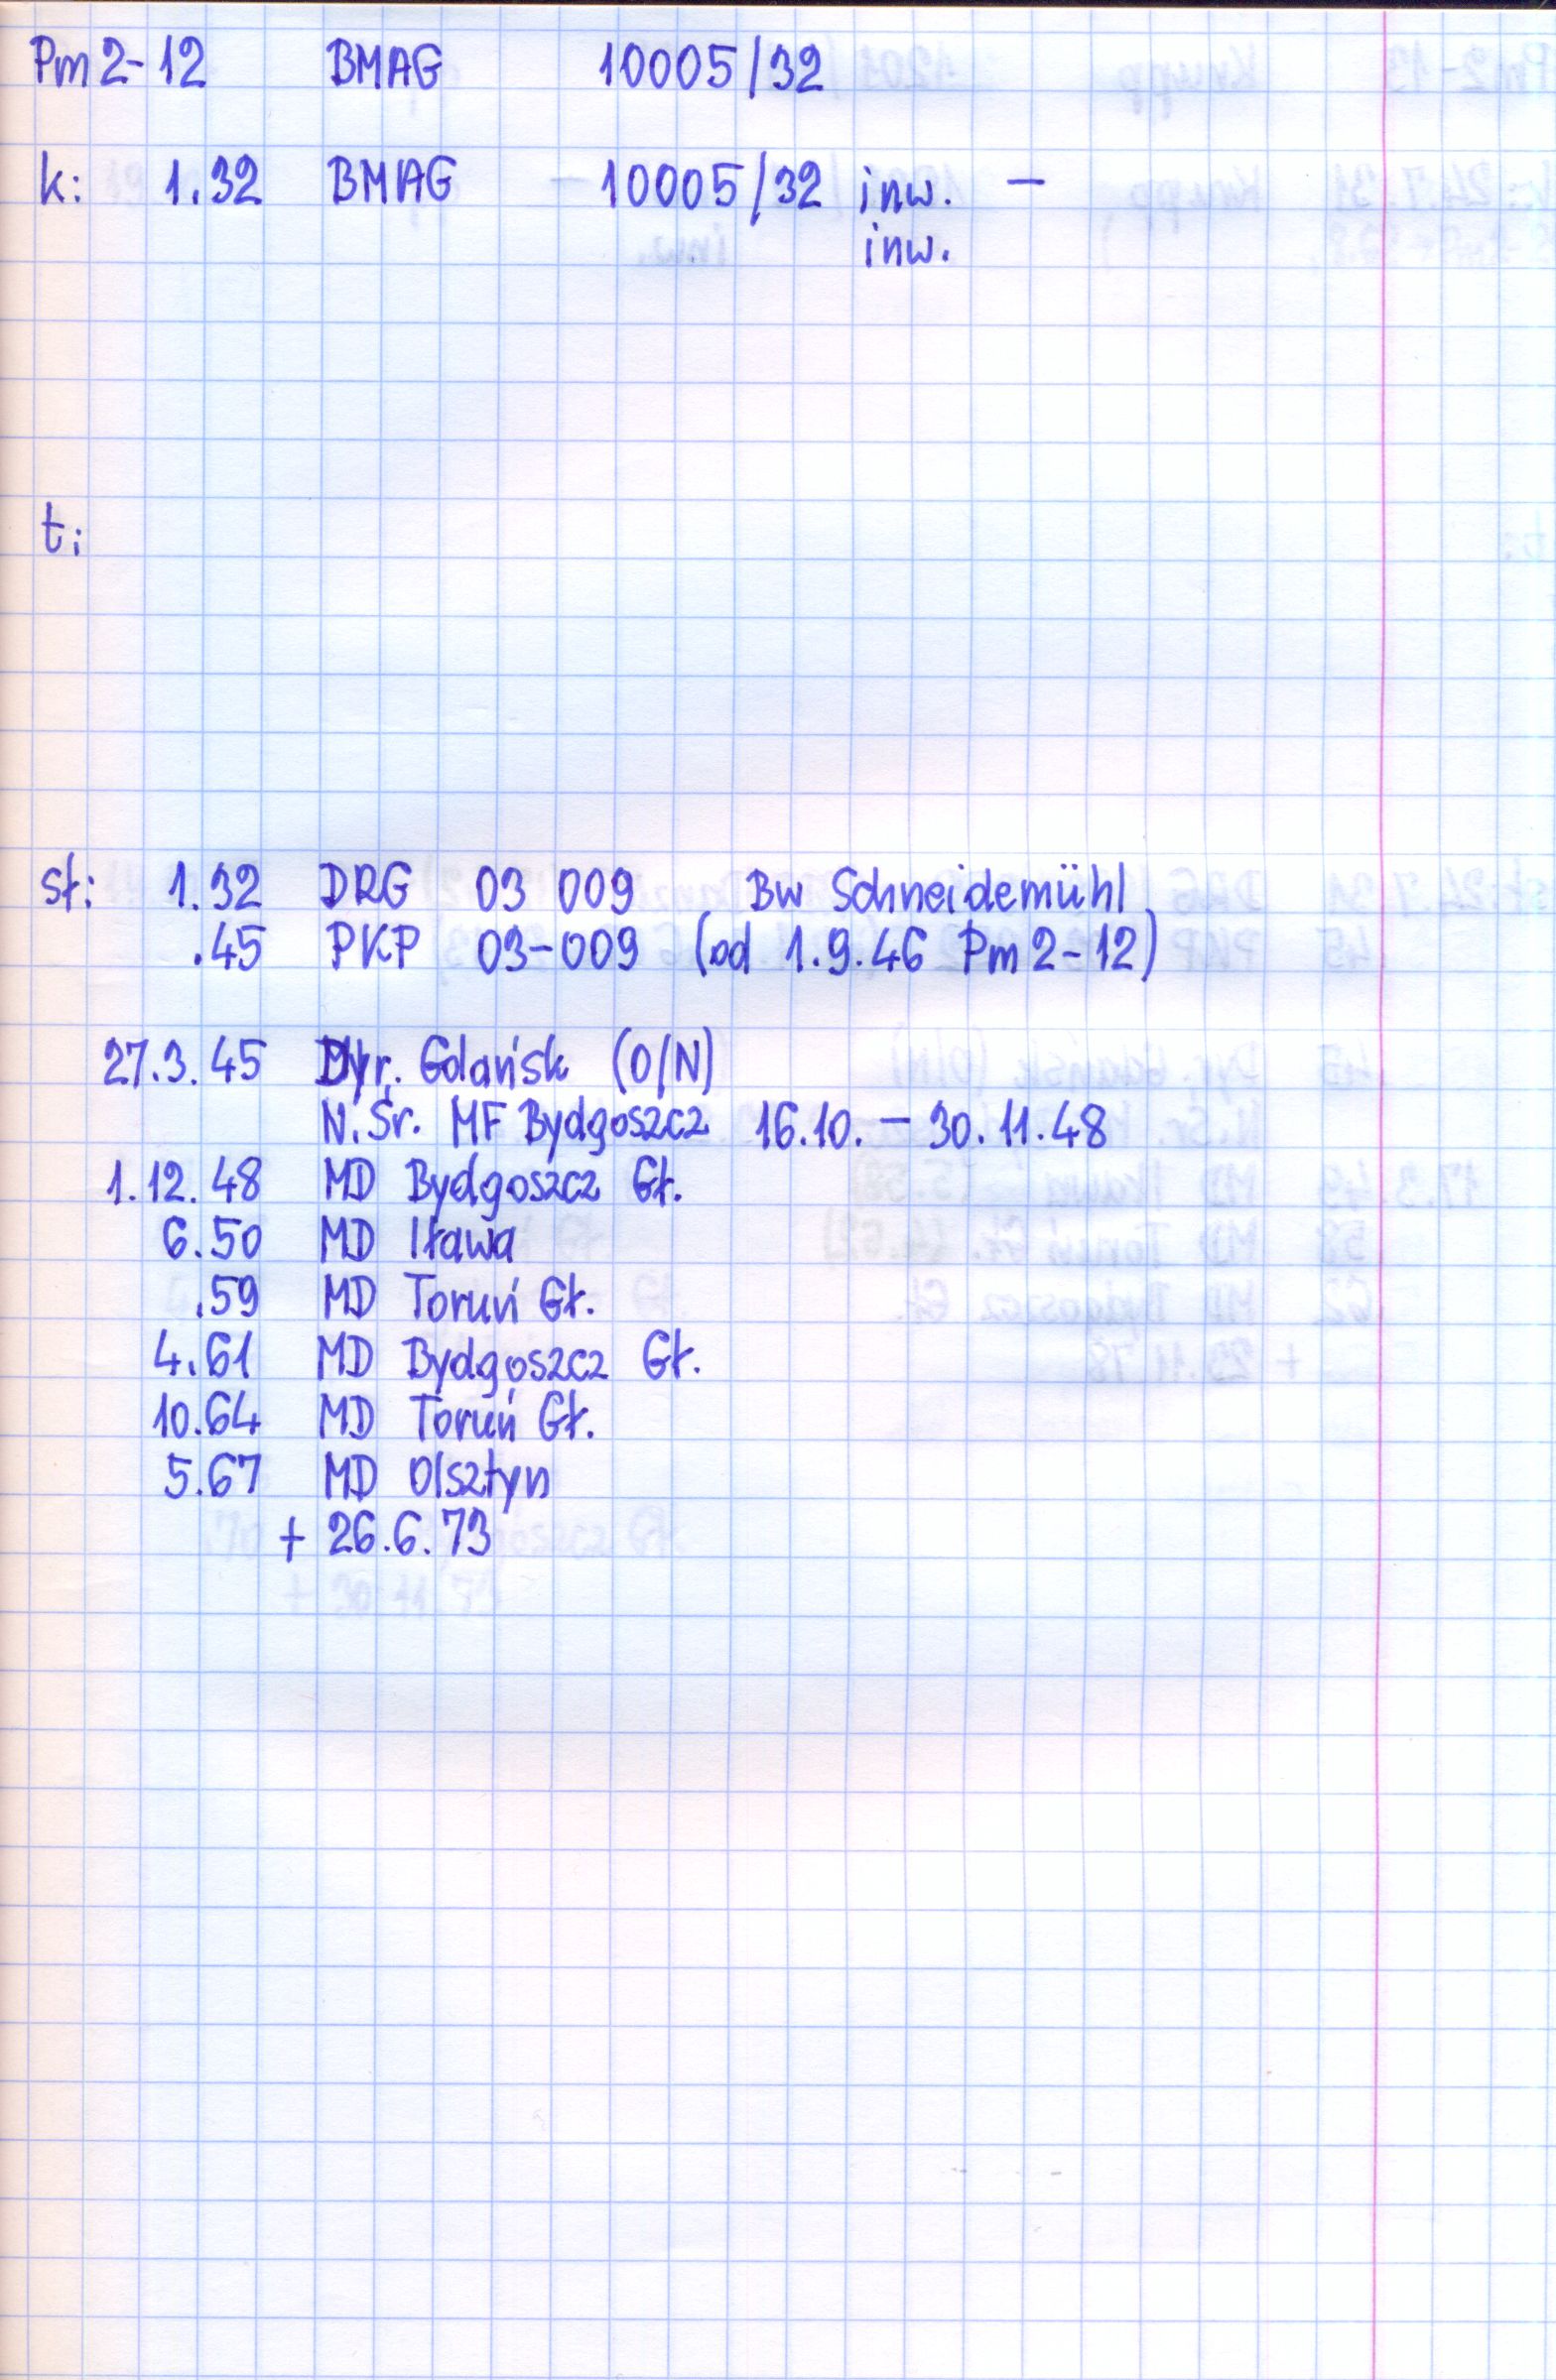 Pm2-12 BMAG 10005/32
k: 1.32 BMAG 10005/32 inw. –
inw.
t:
st: 1.32 DRG 03 009 Bw Schneidemühl
.45 PKP 03-009 (od 1.9.46 Pm2-12)
27.3.45 Dyr. Gdańsk (O/N)
N.Śr. MF Bydgoszcz 16.10. – 30.11.48
1.12.48 MD Bydgoszcz Gł.
6.50 MD Iława
.59 MD Toruń Gł.
4.61 MD Bydgoszcz Gł.
10.64 MD Toruń Gł.
5.67 MD Olsztyn
+ 26.6.73